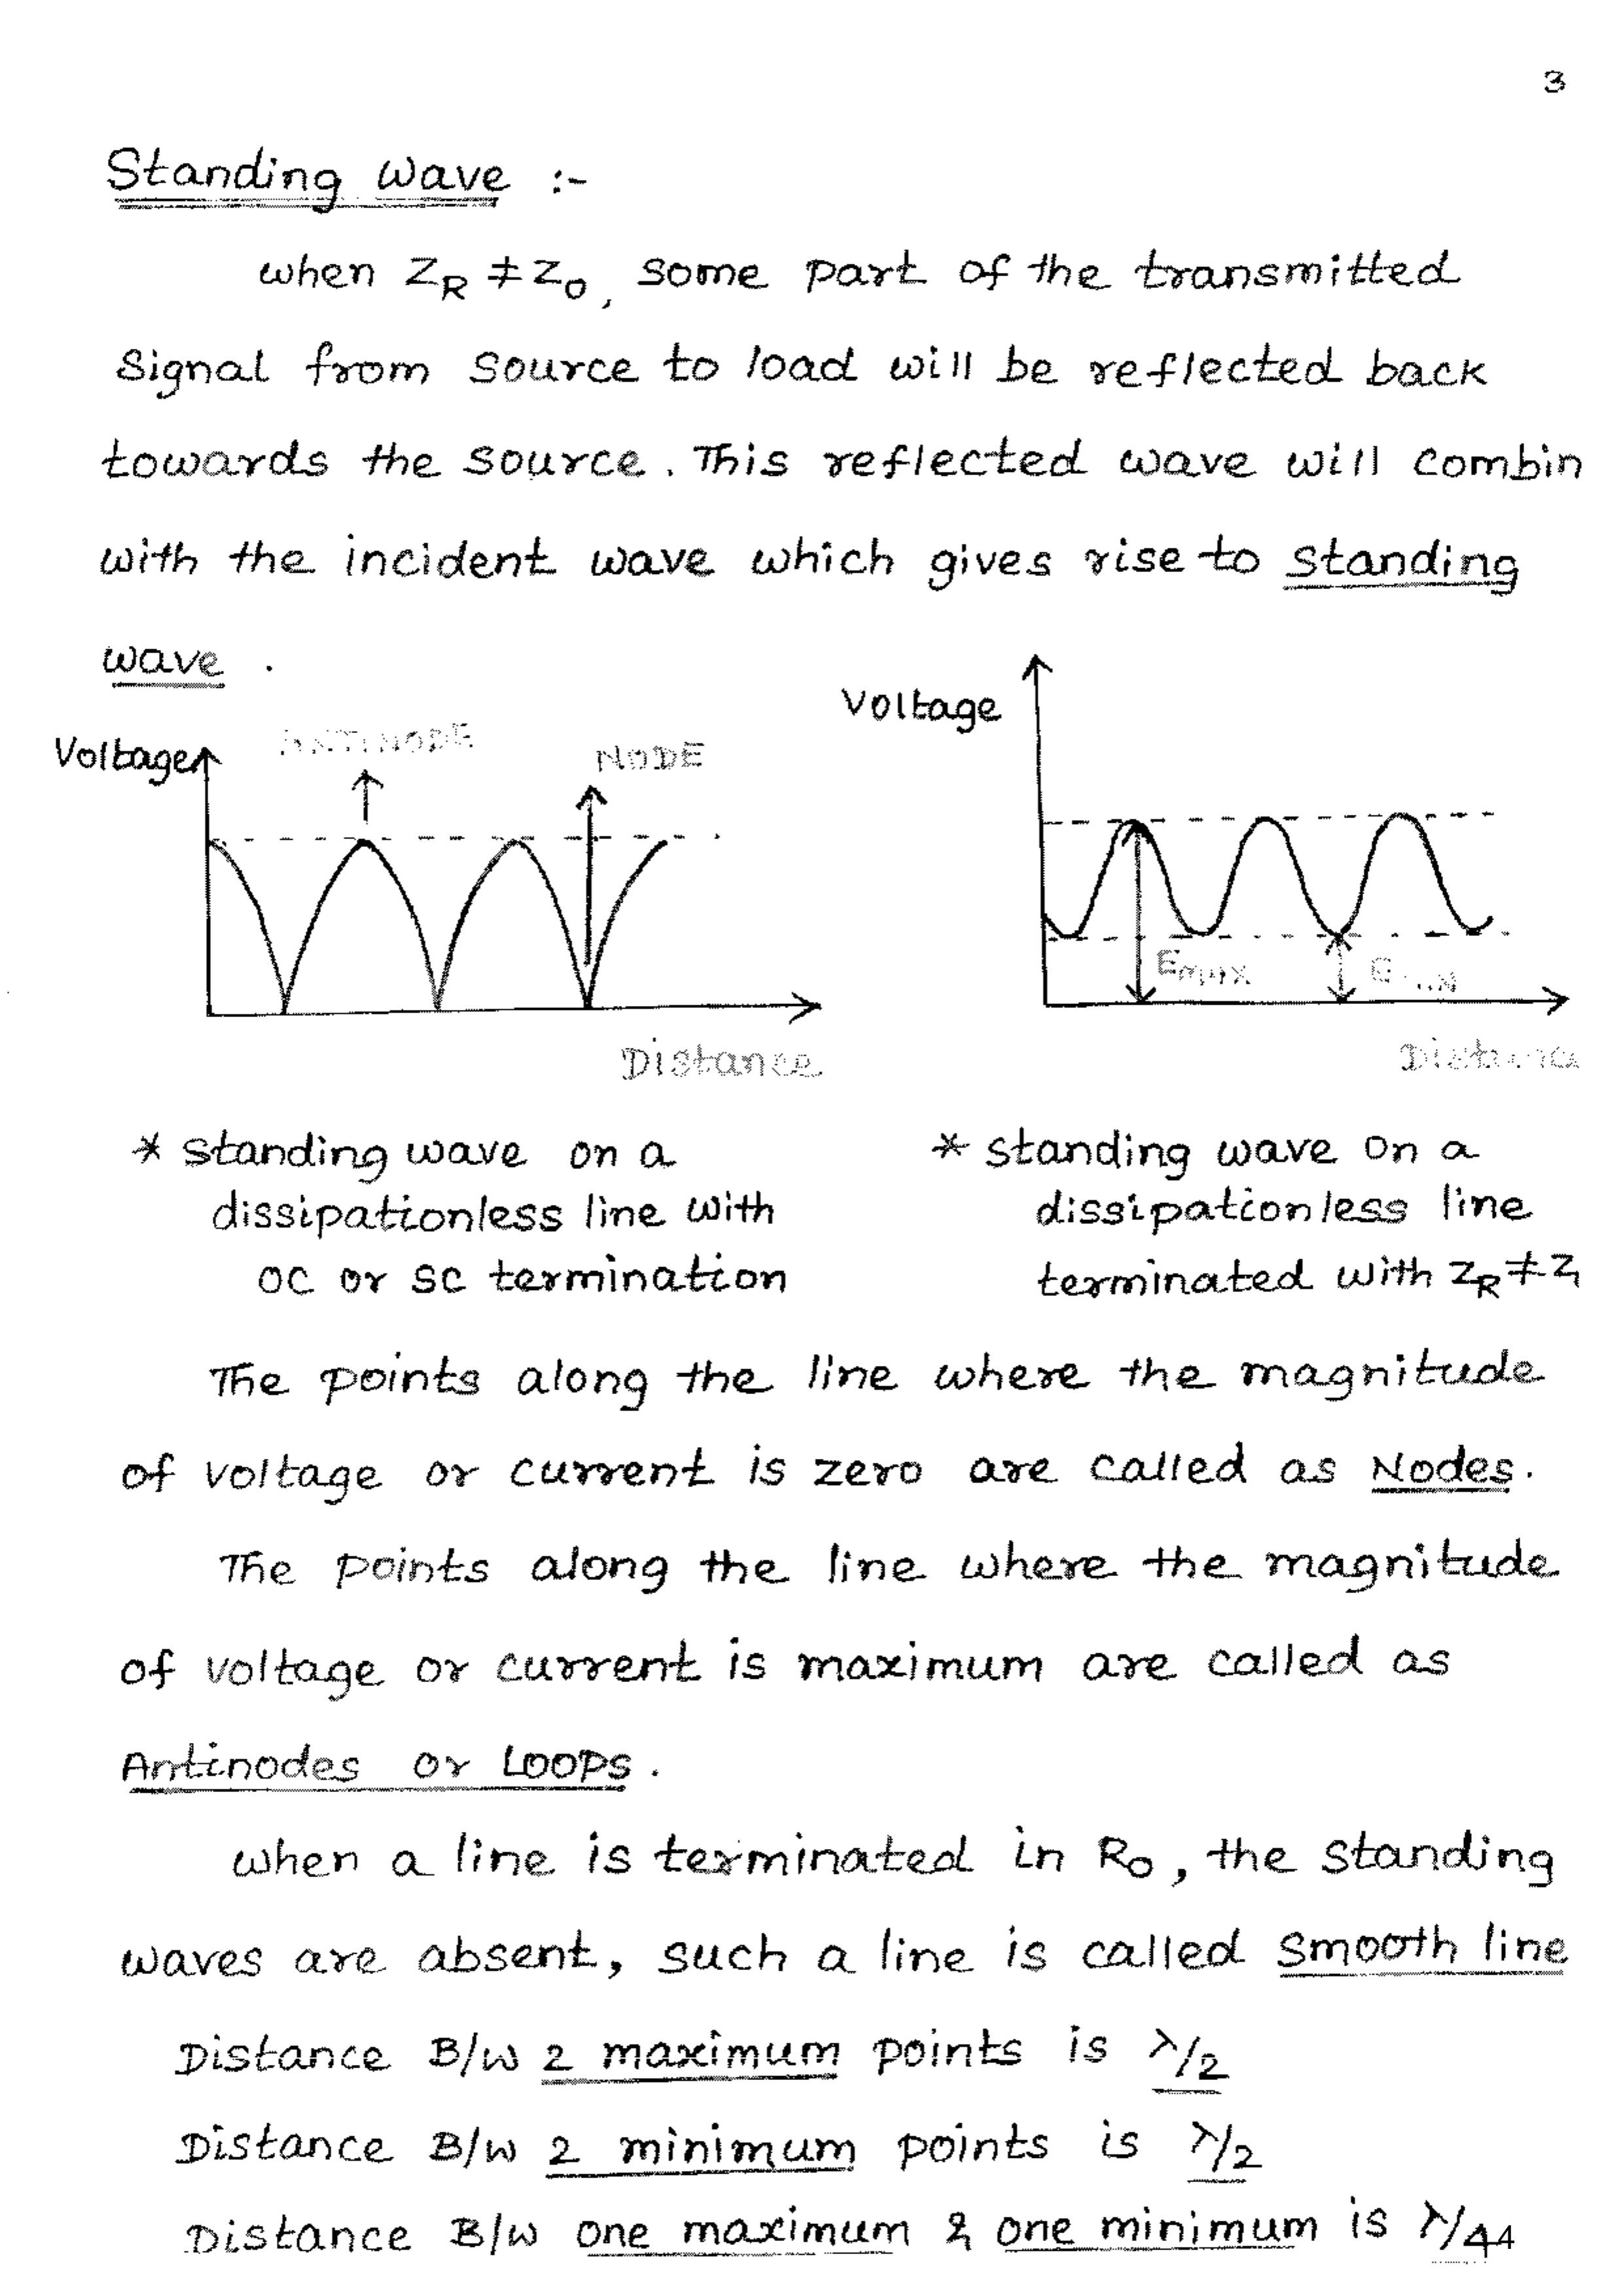 3
Standing wave :-
when Z_R ≠ Z_0, some part of the transmitted
signal from source to load will be reflected back
towards the source. This reflected wave will combin
with the incident wave which gives rise to standing
wave .
Voltage
ANTINODE
NODE
Distance
Voltage
E_MAX
E_MIN
* standing wave on a
dissipationless line with
OC or SC termination
* standing wave on a
dissipationless line
terminated with Z_R ≠ Z
The points along the line where the magnitude
of voltage or current is zero are called as Nodes.
The points along the line where the magnitude
of voltage or current is maximum are called as
Antinodes or Loops.
when a line is terminated in R_0, the standing
waves are absent, such a line is called smooth line
Distance B/W 2 maximum points is λ/2
Distance B/W 2 minimum points is λ/2
Distance B/W one maximum & one minimum is λ/4
4